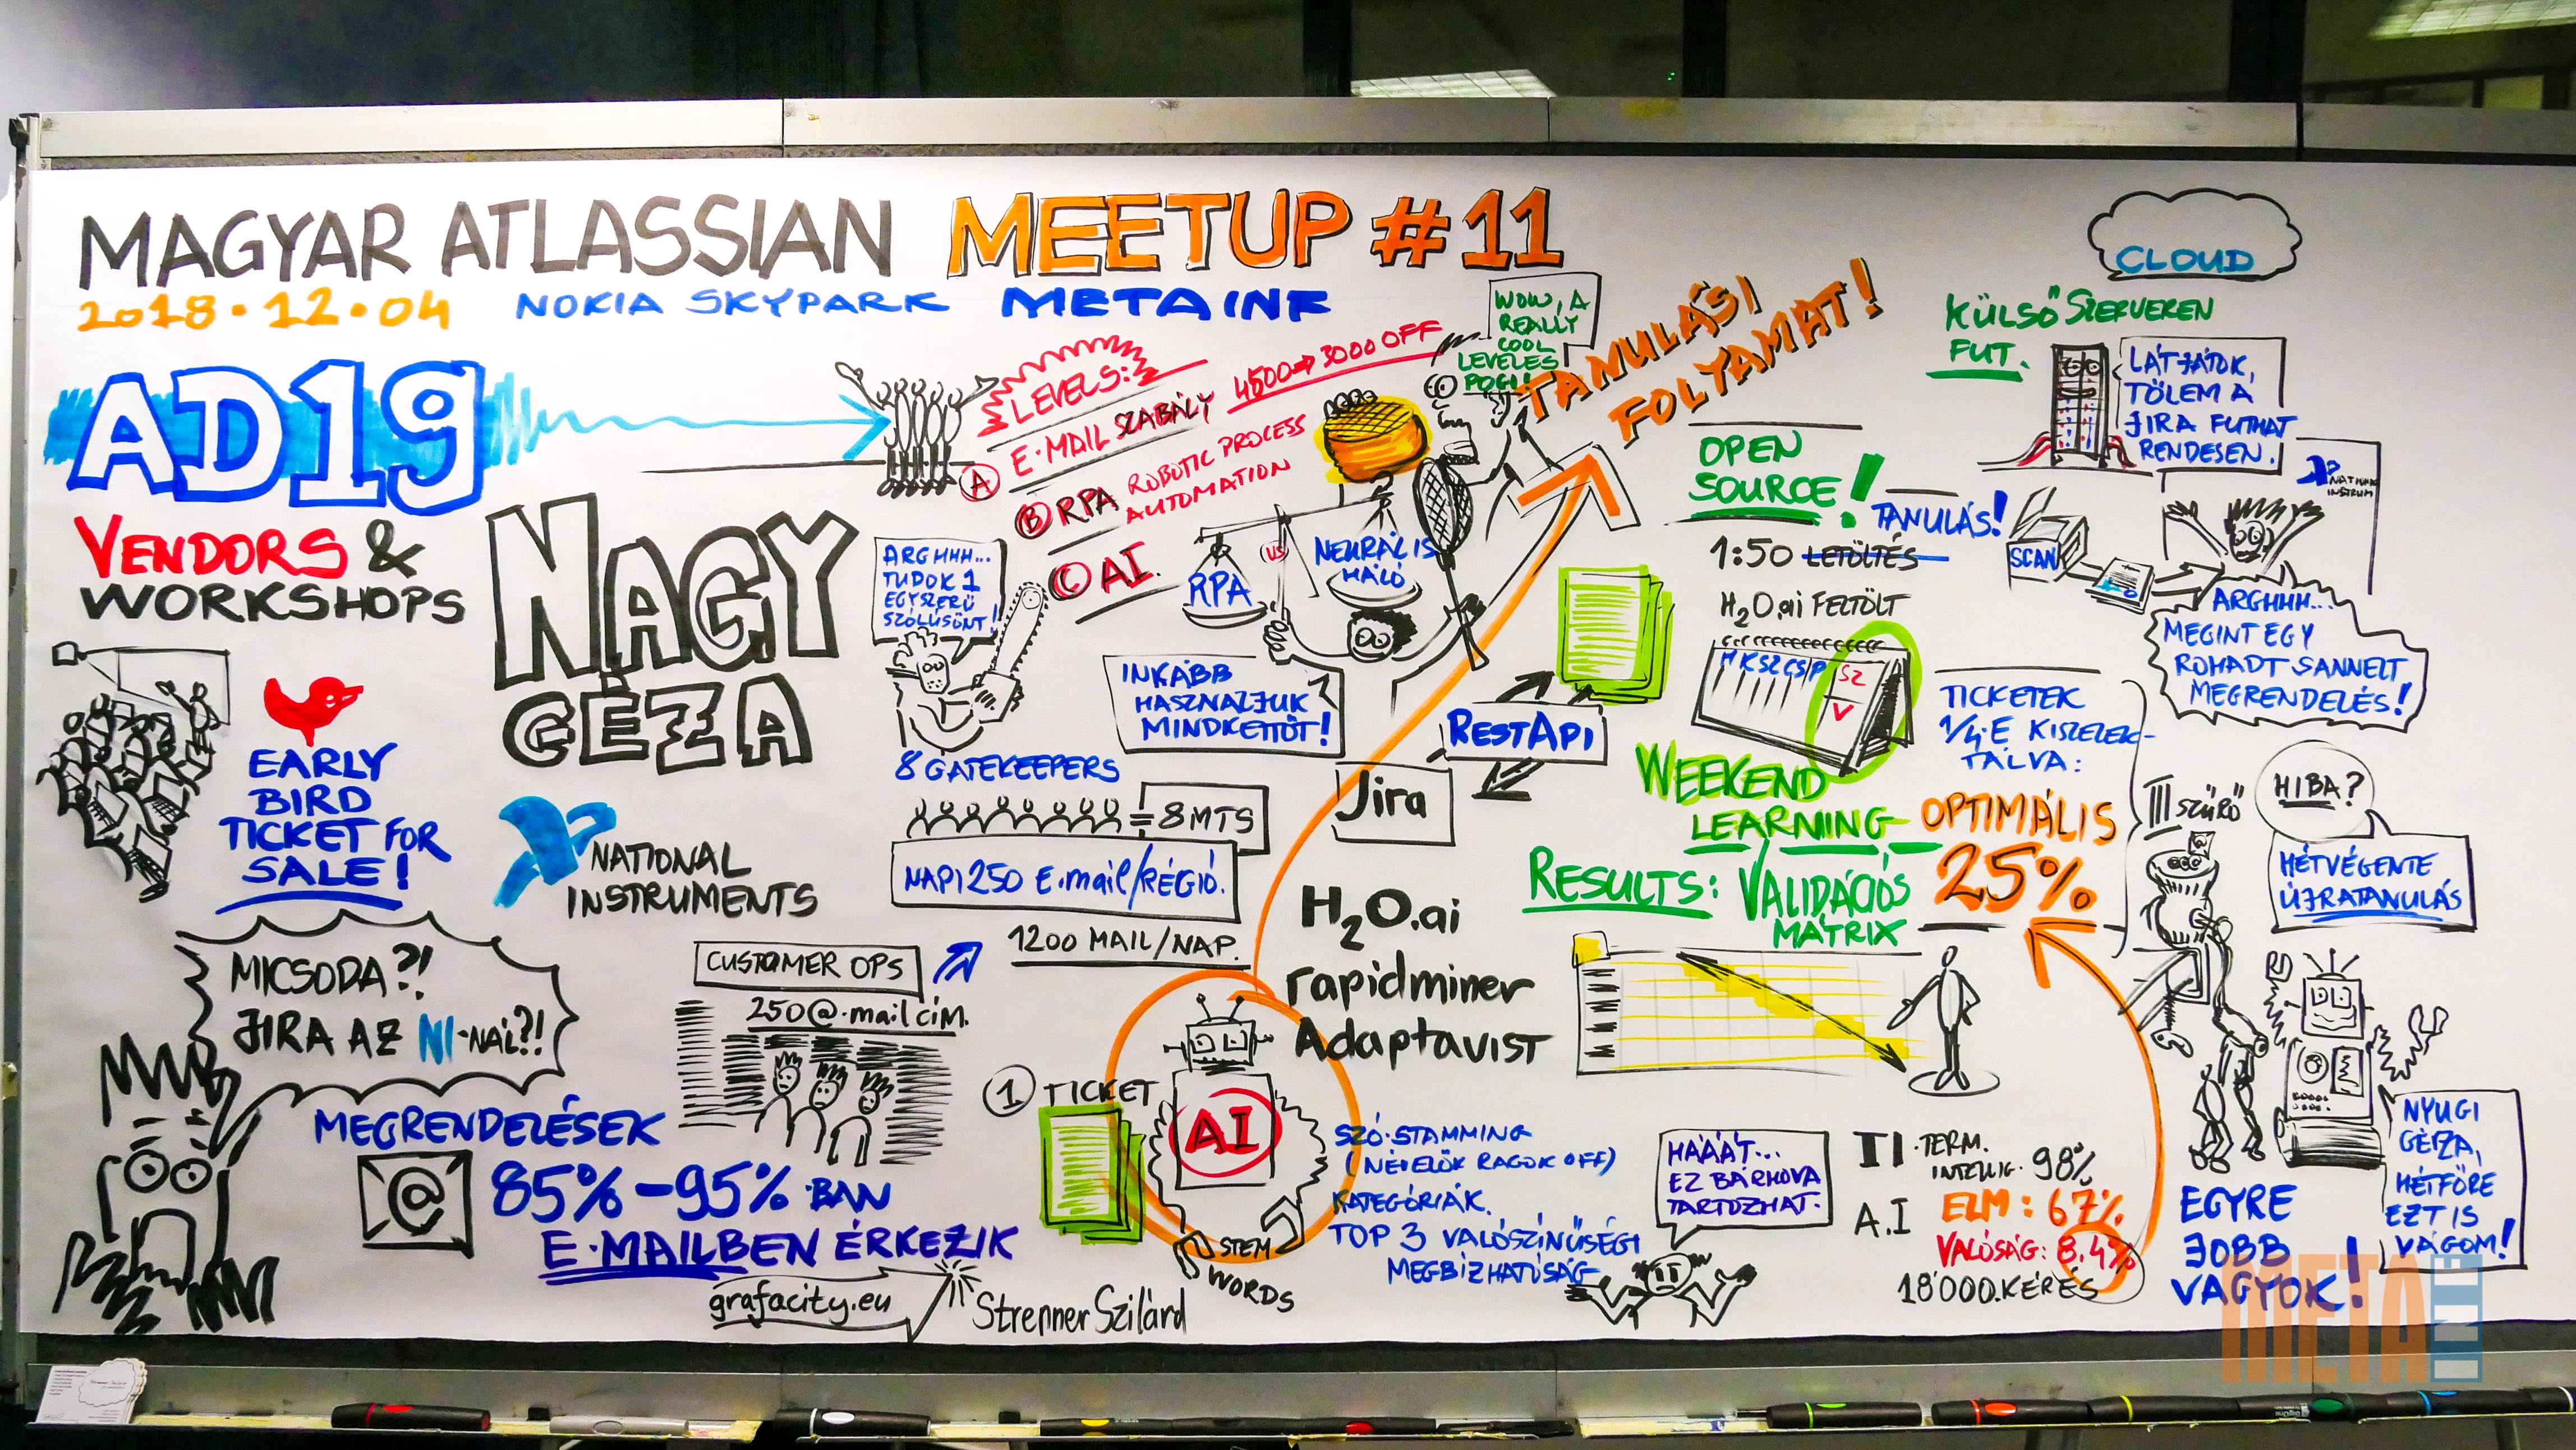 MAGYAR ATLASSIAN MEETUP #11
2018.12.04 NOKIA SKYPARK METAINF
AD19
VENDORS &
WORKSHOPS
EARLY
BIRD
TICKET FOR
SALE!
MICSODA?!
JIRA AZ NI-NÁL?!
MEGRENDELÉSEK
@
85%-95%-BAN
E-MAILBEN ÉRKEZIK
NAGY
GÉZA
NATIONAL
INSTRUMENTS
CUSTOMER OPS
250@-mail cím.
grafacity.eu
Strenner Szilárd
LEVELS:
4500→3000 OFF
A E-MAIL SZABÁLY
B RPA ROBOTIC PROCESS
AUTOMATION
C AI.
ARGHHH...
TUDOK 1
EGYSZERŰ
SZÓLUSÖNT!
8 GATEKEEPERS
=8MTS
NAPI 250 E.mail/RÉGIÓ.
1200 MAIL/NAP.
RPA
VS
NEURÁLIS
HÁLÓ
INKÁBB
HASZNÁLJUK
MINDKETTŐT!
WOW, A
REALLY
COOL
LEVELES
POGI!
TANULÁSI
FOLYAMAT!
RESTAPI
Jira
H2O.ai
rapidminer
Adaptavist
1 TICKET
AI
STEM
WORDS
SZÓ-STAMMING
(NÉVELŐK RAGOK OFF)
KATEGÓRIÁK.
TOP 3 VALÓSZÍNŰSÉGI
MEGBÍZHATÓSÁG
OPEN
SOURCE!
TANULÁS!
1:50 LETÖLTÉS
H2O.ai FELTÖLT
H K SZ CS P SZ
V
WEEKEND
LEARNING
RESULTS: VALIDÁCIÓS
MÁTRIX
HÁÁÁT...
EZ BÁRHOVA
TARTOZHAT.
TI-TERM.
INTELLIG. 98%
A.I ELM: 67%
VALÓSÁG: 8.4%
18'000.KÉRÉS
CLOUD
KÜLSŐ SZERVEREN
FUT.
LÁTJÁTOK,
TŐLEM A
JIRA FUTHAT
RENDESEN.
NATIONAL
INSTRUM
SCAN
ARGHHH...
MEGINT EGY
ROHADT SANNELT
MEGRENDELÉS!
TICKETEK
1/4-E KISZELEK-
TÁLVA:
OPTIMÁLIS
25%
III SZŰRŐ
HIBA?
HÉTVÉGENTE
ÚJRATANULÁS
EGYRE
JOBB
VAGYOK!
NYUGI
GÉZA,
HÉTFŐRE
EZT IS
VÁGOM!
META
INF